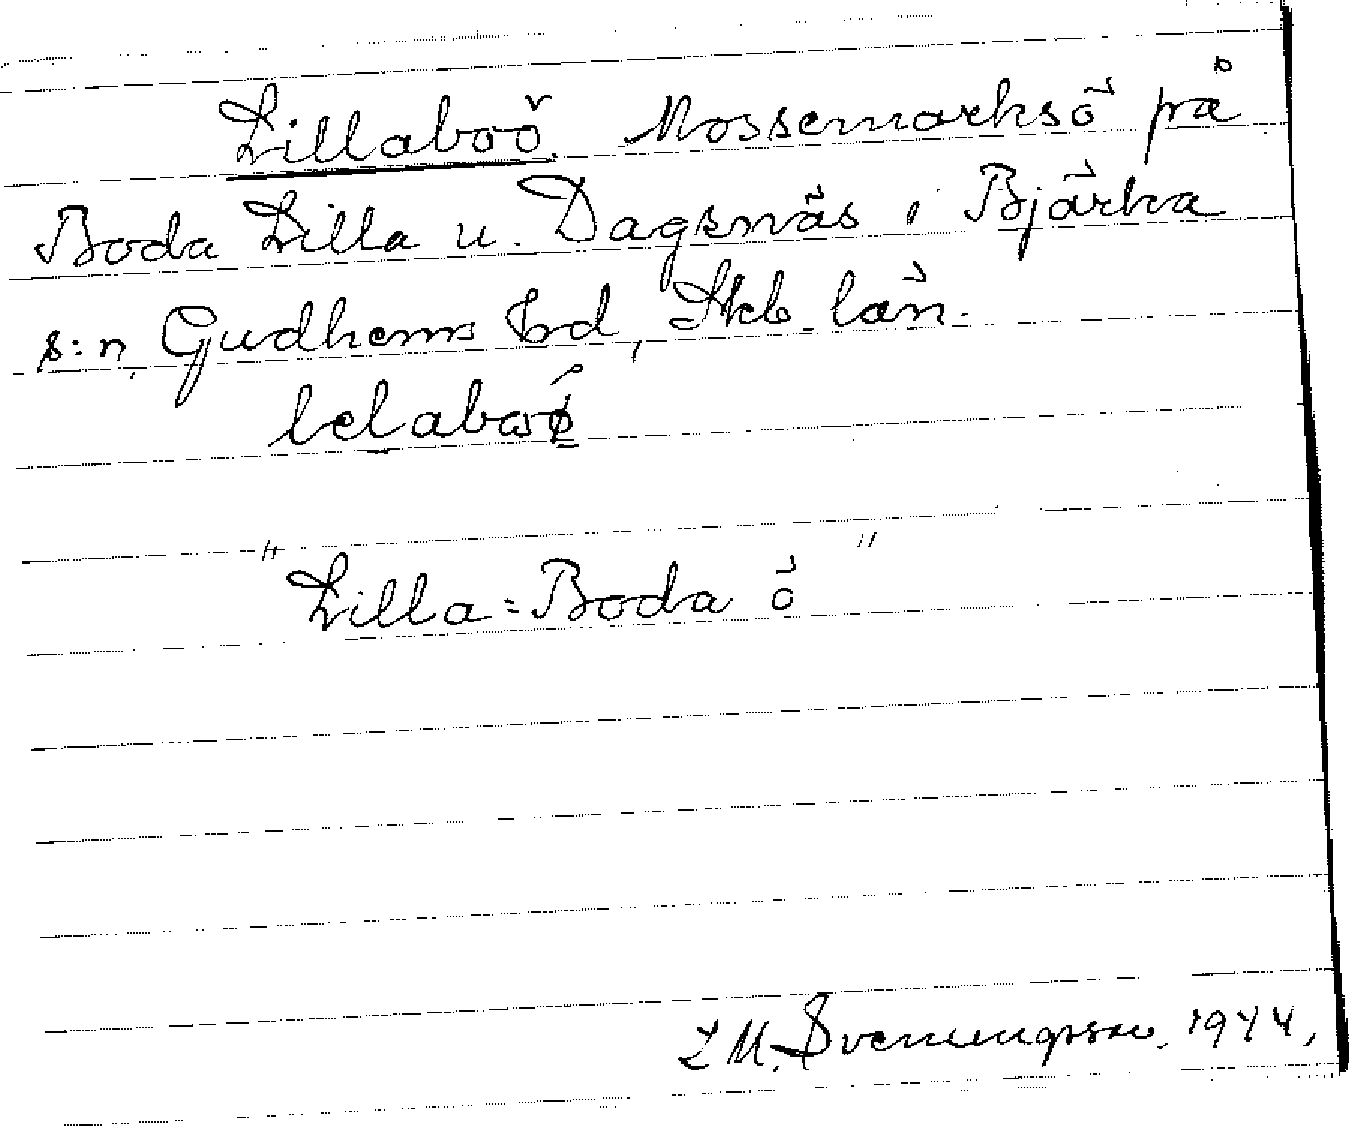 Lillaboö. Mossemarksö på
Boda Lilla u. Dagsnäs i Bjärka
s:n, Gudhems hd, Skb. län.
lelabo
"Lilla=Boda ö"
L M. Svenungsson. 1944,